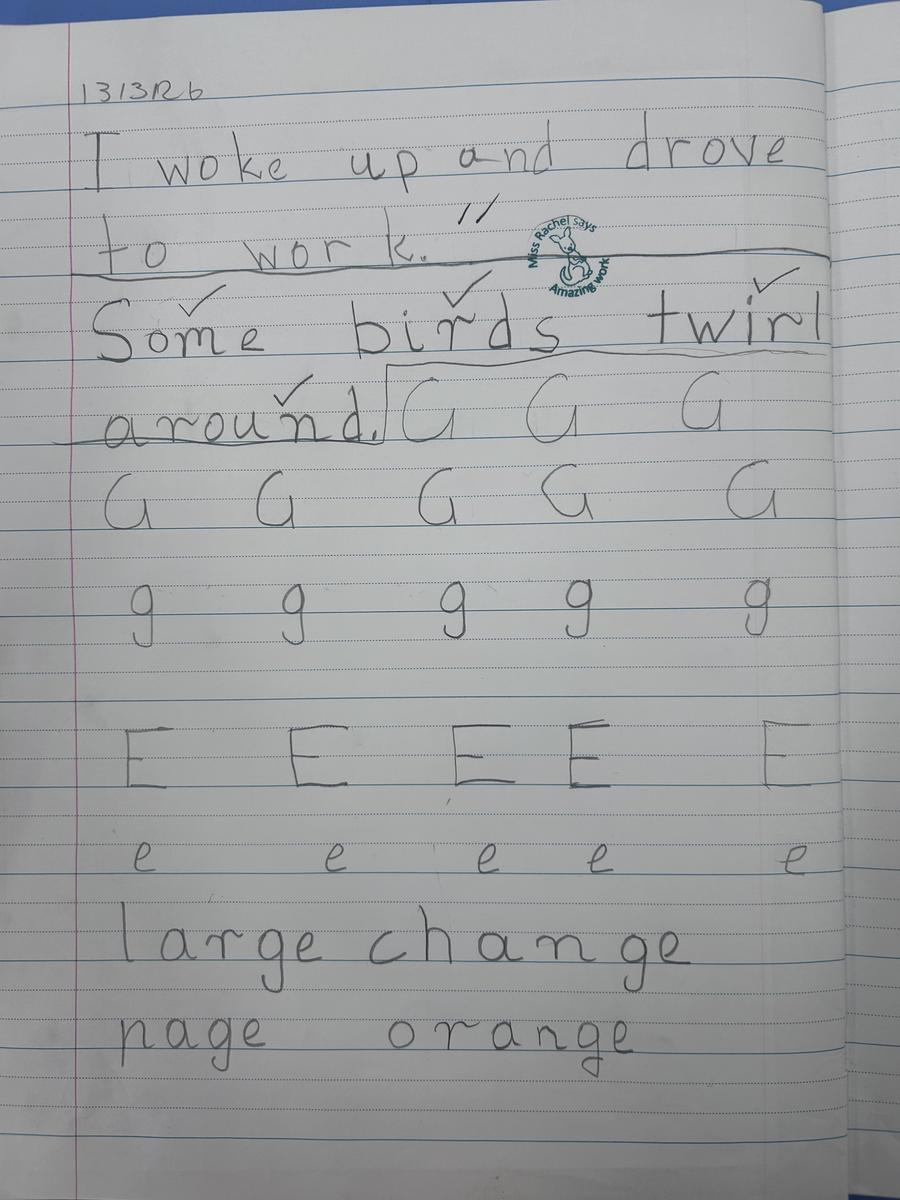 131312b
I woke up and drove
to work. "
Miss Rachel says
Amazing work
Some birds twirl
around. G G G
G G G G G
g g g g g
E E E E E
e e e e e
large change
page orange